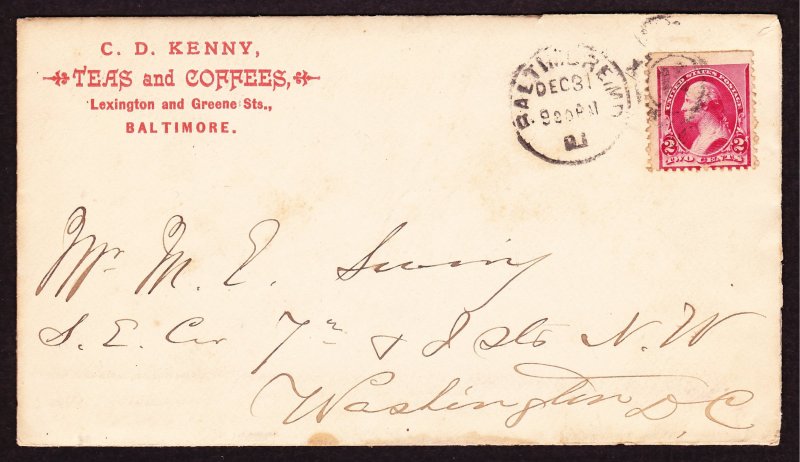 C. D. KENNY,
TEAS and COFFEES,
Lexington and Greene Sts.,
BALTIMORE.
BALTIMORE, MD.
DEC 31
9 30 PM
UNITED STATES POSTAGE
2 2
TWO CENTS
Mr. M. E.
S. E. Cor 7th & I Sts N. W
Washington D. C